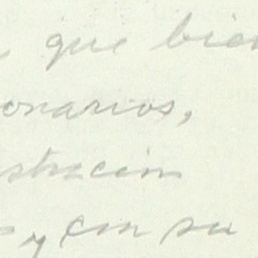 que bien
onarios,
stración
y con su